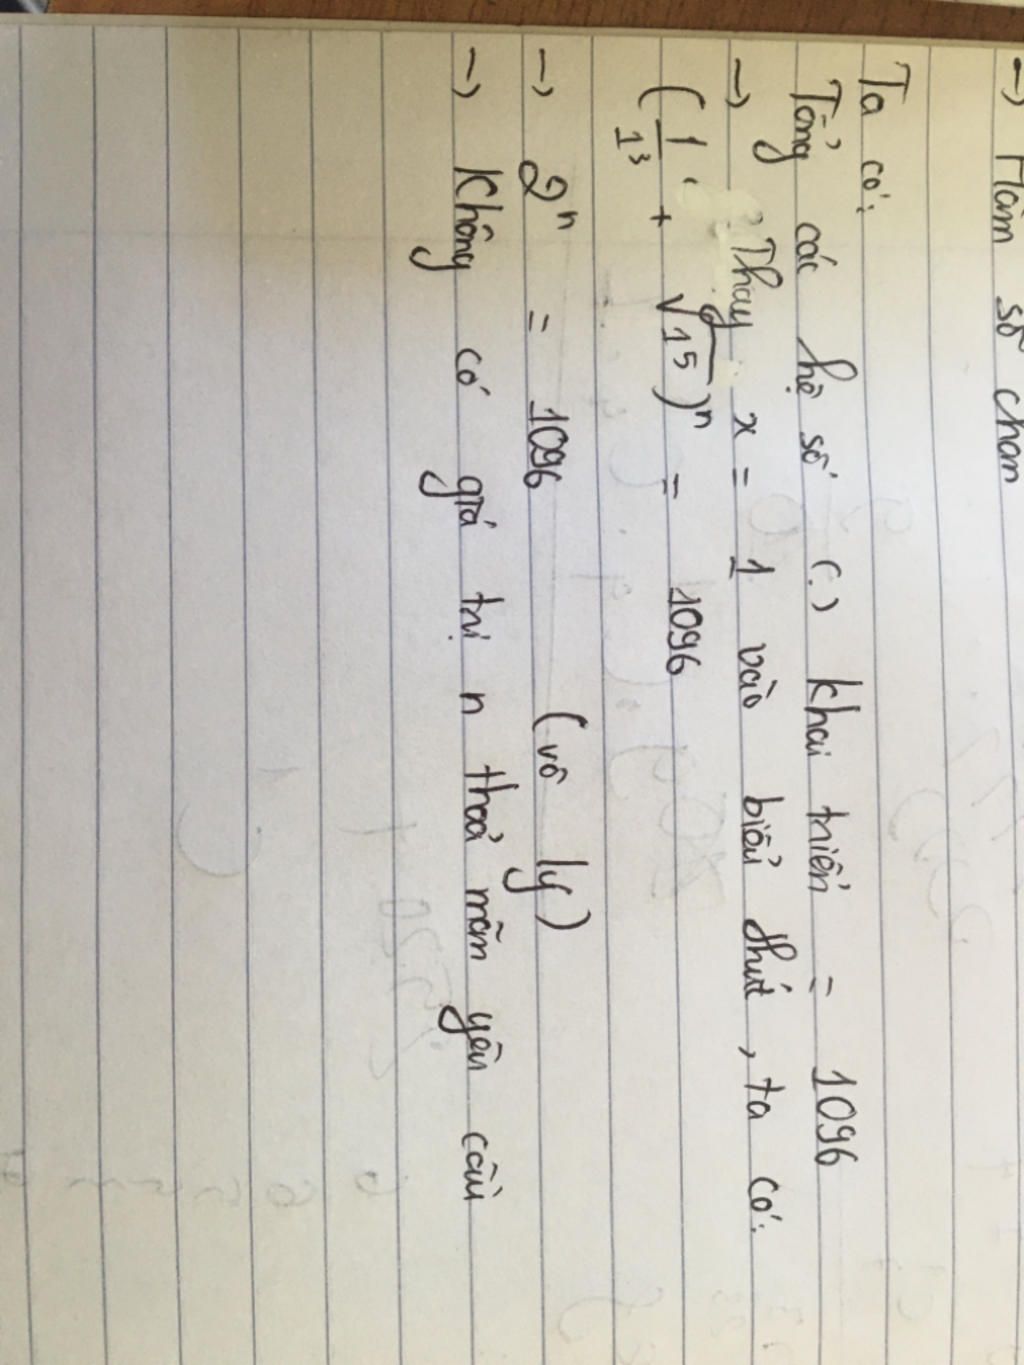 → Hàm số chẵn
Ta có:
Tổng các hệ số (.) khai triển = 1096
→ Thay x = 1 vào biểu thức, ta có:
(1/1³ + √1⁵)ⁿ = 1096
→ 2ⁿ = 1096 (vô lý)
→ Không có giá trị n thoả mãn yêu cầu